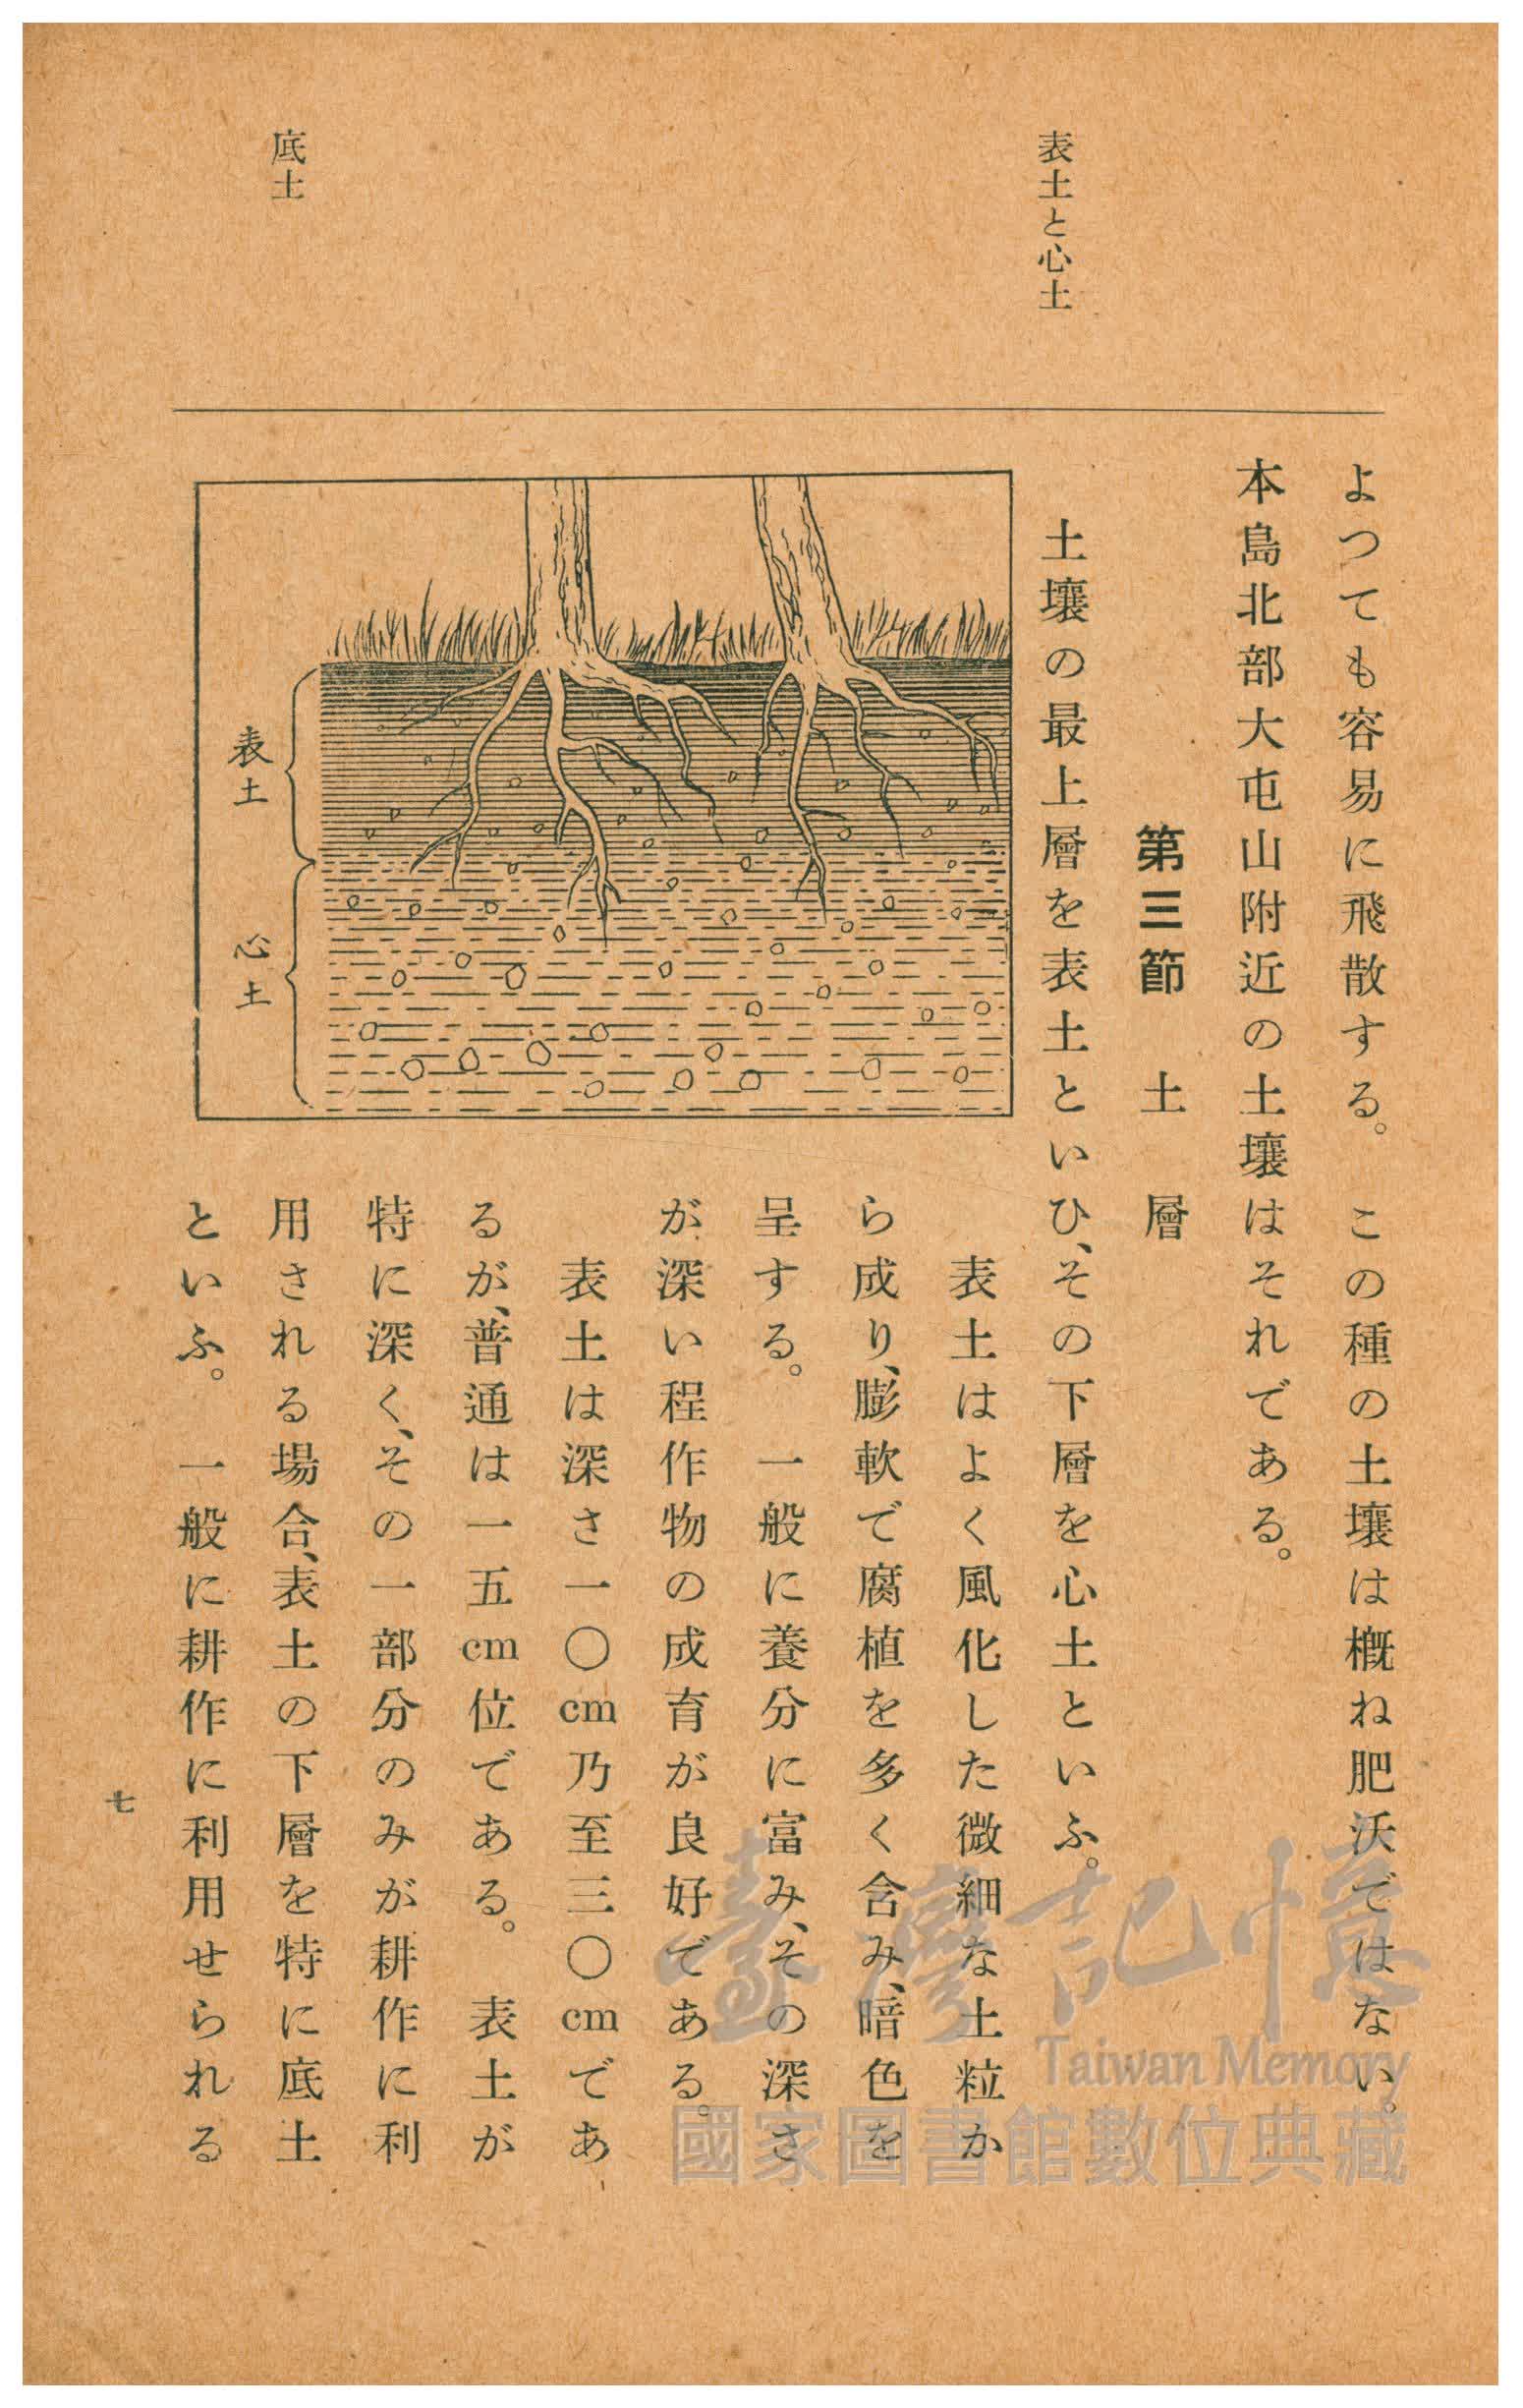 よつても容易に飛散する。　この種の土壤は槪ね肥沃ではない。
本島北部大屯山附近の土壤はそれである。
第三節　土　層
表土と心土
土壤の最上層を表土といひ、その下層を心土といふ。
表土はよく風化した微細な土粒か
ら成り、膨軟で腐植を多く含み、暗色を
呈する。　一般に養分に富み、その深さ
が深い程作物の成育が良好である。
表土は深さ一〇cm乃至三〇cmであ
るが、普通は一五cm位である。　表土が
特に深く、その一部分のみが耕作に利
底土
用される場合、表土の下層を特に底土
といふ。　一般に耕作に利用せられる
表土
心土
七
臺灣記憶
Taiwan Memory
國家圖書館數位典藏